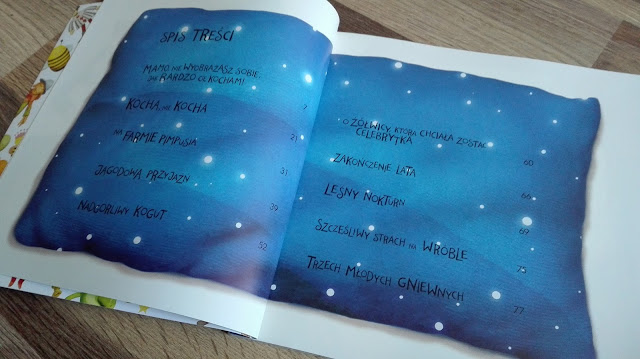 SPIS TREŚCI
MAMO, NIE WYOBRAŻASZ SOBIE,
JAK BARDZO CIĘ KOCHAM! 7
KOCHA, NIE KOCHA 21
NA FARMIE PIMPUSIA 31
JAGODOWA PRZYJAŹŃ 39
NADGORLIWY KOGUT 52
O ŻÓŁWICY, KTÓRA CHCIAŁA ZOSTAĆ
CELEBRYTKĄ 60
ZAKOŃCZENIE LATA 66
LEŚNY NOKTURN 69
SZCZĘŚLIWY STRACH NA WRÓBLE 75
TRZECH MŁODYCH GNIEWNYCH 77